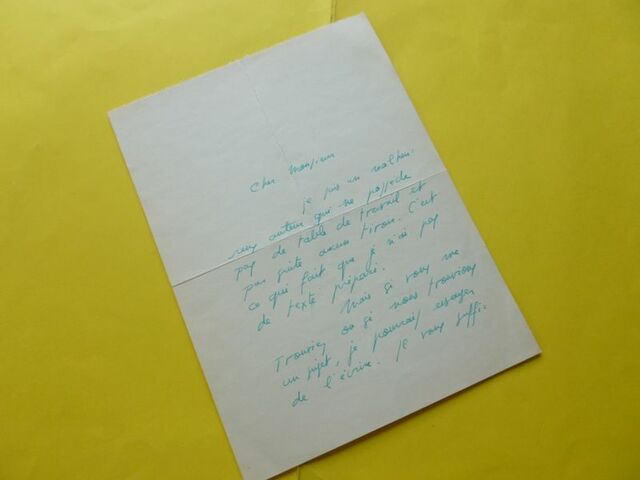 Cher Monsieur
je suis un malheu-
reux auteur qui ne possède
pas de table de travail et
par suite aucun tiroir. C'est
ce qui fait que je n'ai pas
de texte préparé.
Mais si vous me
trouviez ou si nous trouvions
un sujet, je pourrais essayer
de l'écrire. Je vous